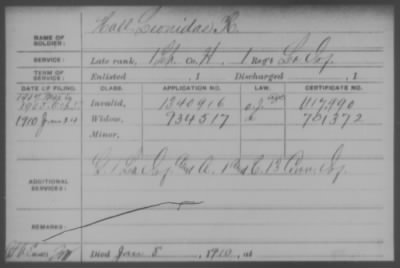 NAME OF SOLDIER: Hall, Leonidas R.
SERVICE: Late rank, Co. H, 1 Reg't La. Inf.
TERM OF SERVICE: Enlisted , 1 Discharged , 1
DATE OF FILING. CLASS. APPLICATION NO. LAW. CERTIFICATE NO.
Invalid, 1340916 1117990
1910 Jan 24 Widow, 934517 701372
Minor,
ADDITIONAL SERVICES: G. 1 La. Inf and A. 1 and E. 13 Conn. Inf.
REMARKS:
Died Jan 5, 1910, at